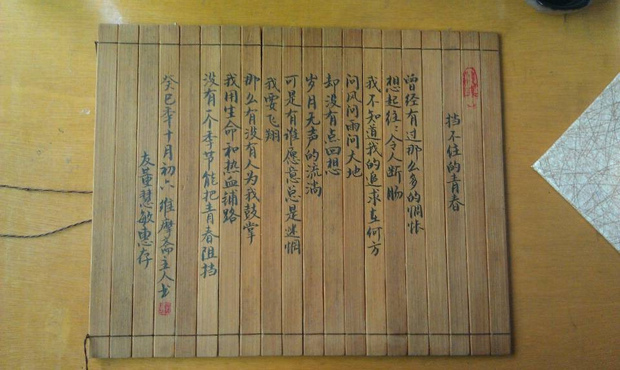 挡不住的青春
曾经有过那么多的惆怅
想起往:令人断肠
我不知道我的追求在何方
问风问雨问大地
却没有点回想
岁月无声的流淌
可是有谁愿意总是迷惘
我要飞翔
那么有没有人为我鼓掌
我用生命和热血铺路
没有一个季节能把青春阻挡
癸巳年十月初六维摩斋主人书
友董慧敏惠存